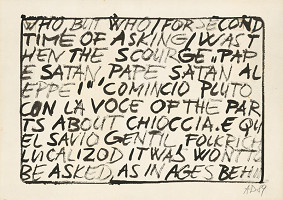 WHO BUT WHO / FOR SECOND
TIME OF ASKING / WAS T
HEN THE SCOURGE „PAP
E SATAN, PAPE SATAN AL
EPPE!" COMINCIO PLUTO
CON LA VOCE OF THE PAR
TS ABOUT CHIOCCIA. E QU
EL SAVIO GENTIL FOLKRICH
LUCALIZOD IT WAS WONT TO
BE ASKED, AS IN AGES BEHI